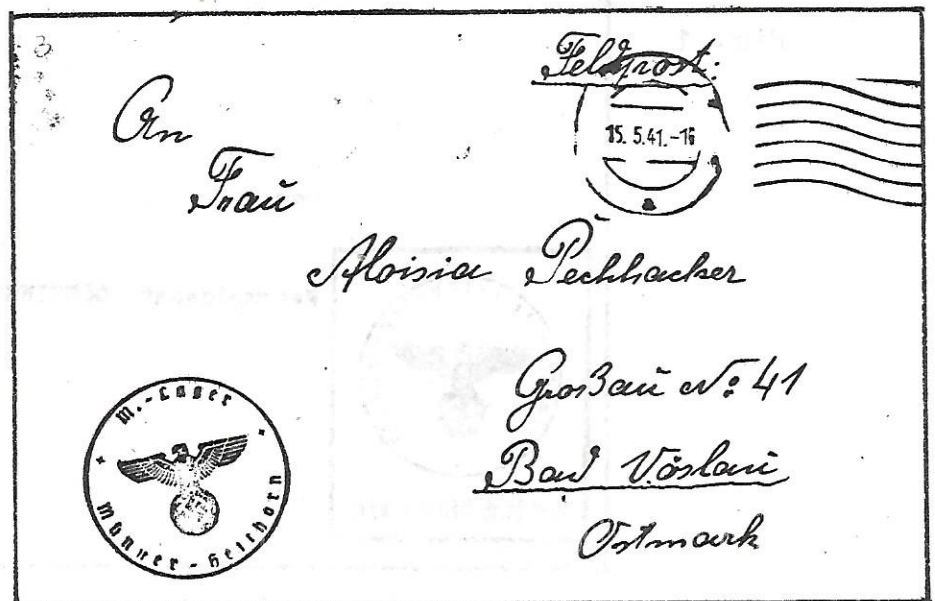 Feldpost.
15. 5. 41. - 16
An
Frau
Aloisia Pechhacker
Großau No: 41
Bad Vöslau
Ostmark
M.-Lager
Männer-Hellhorn